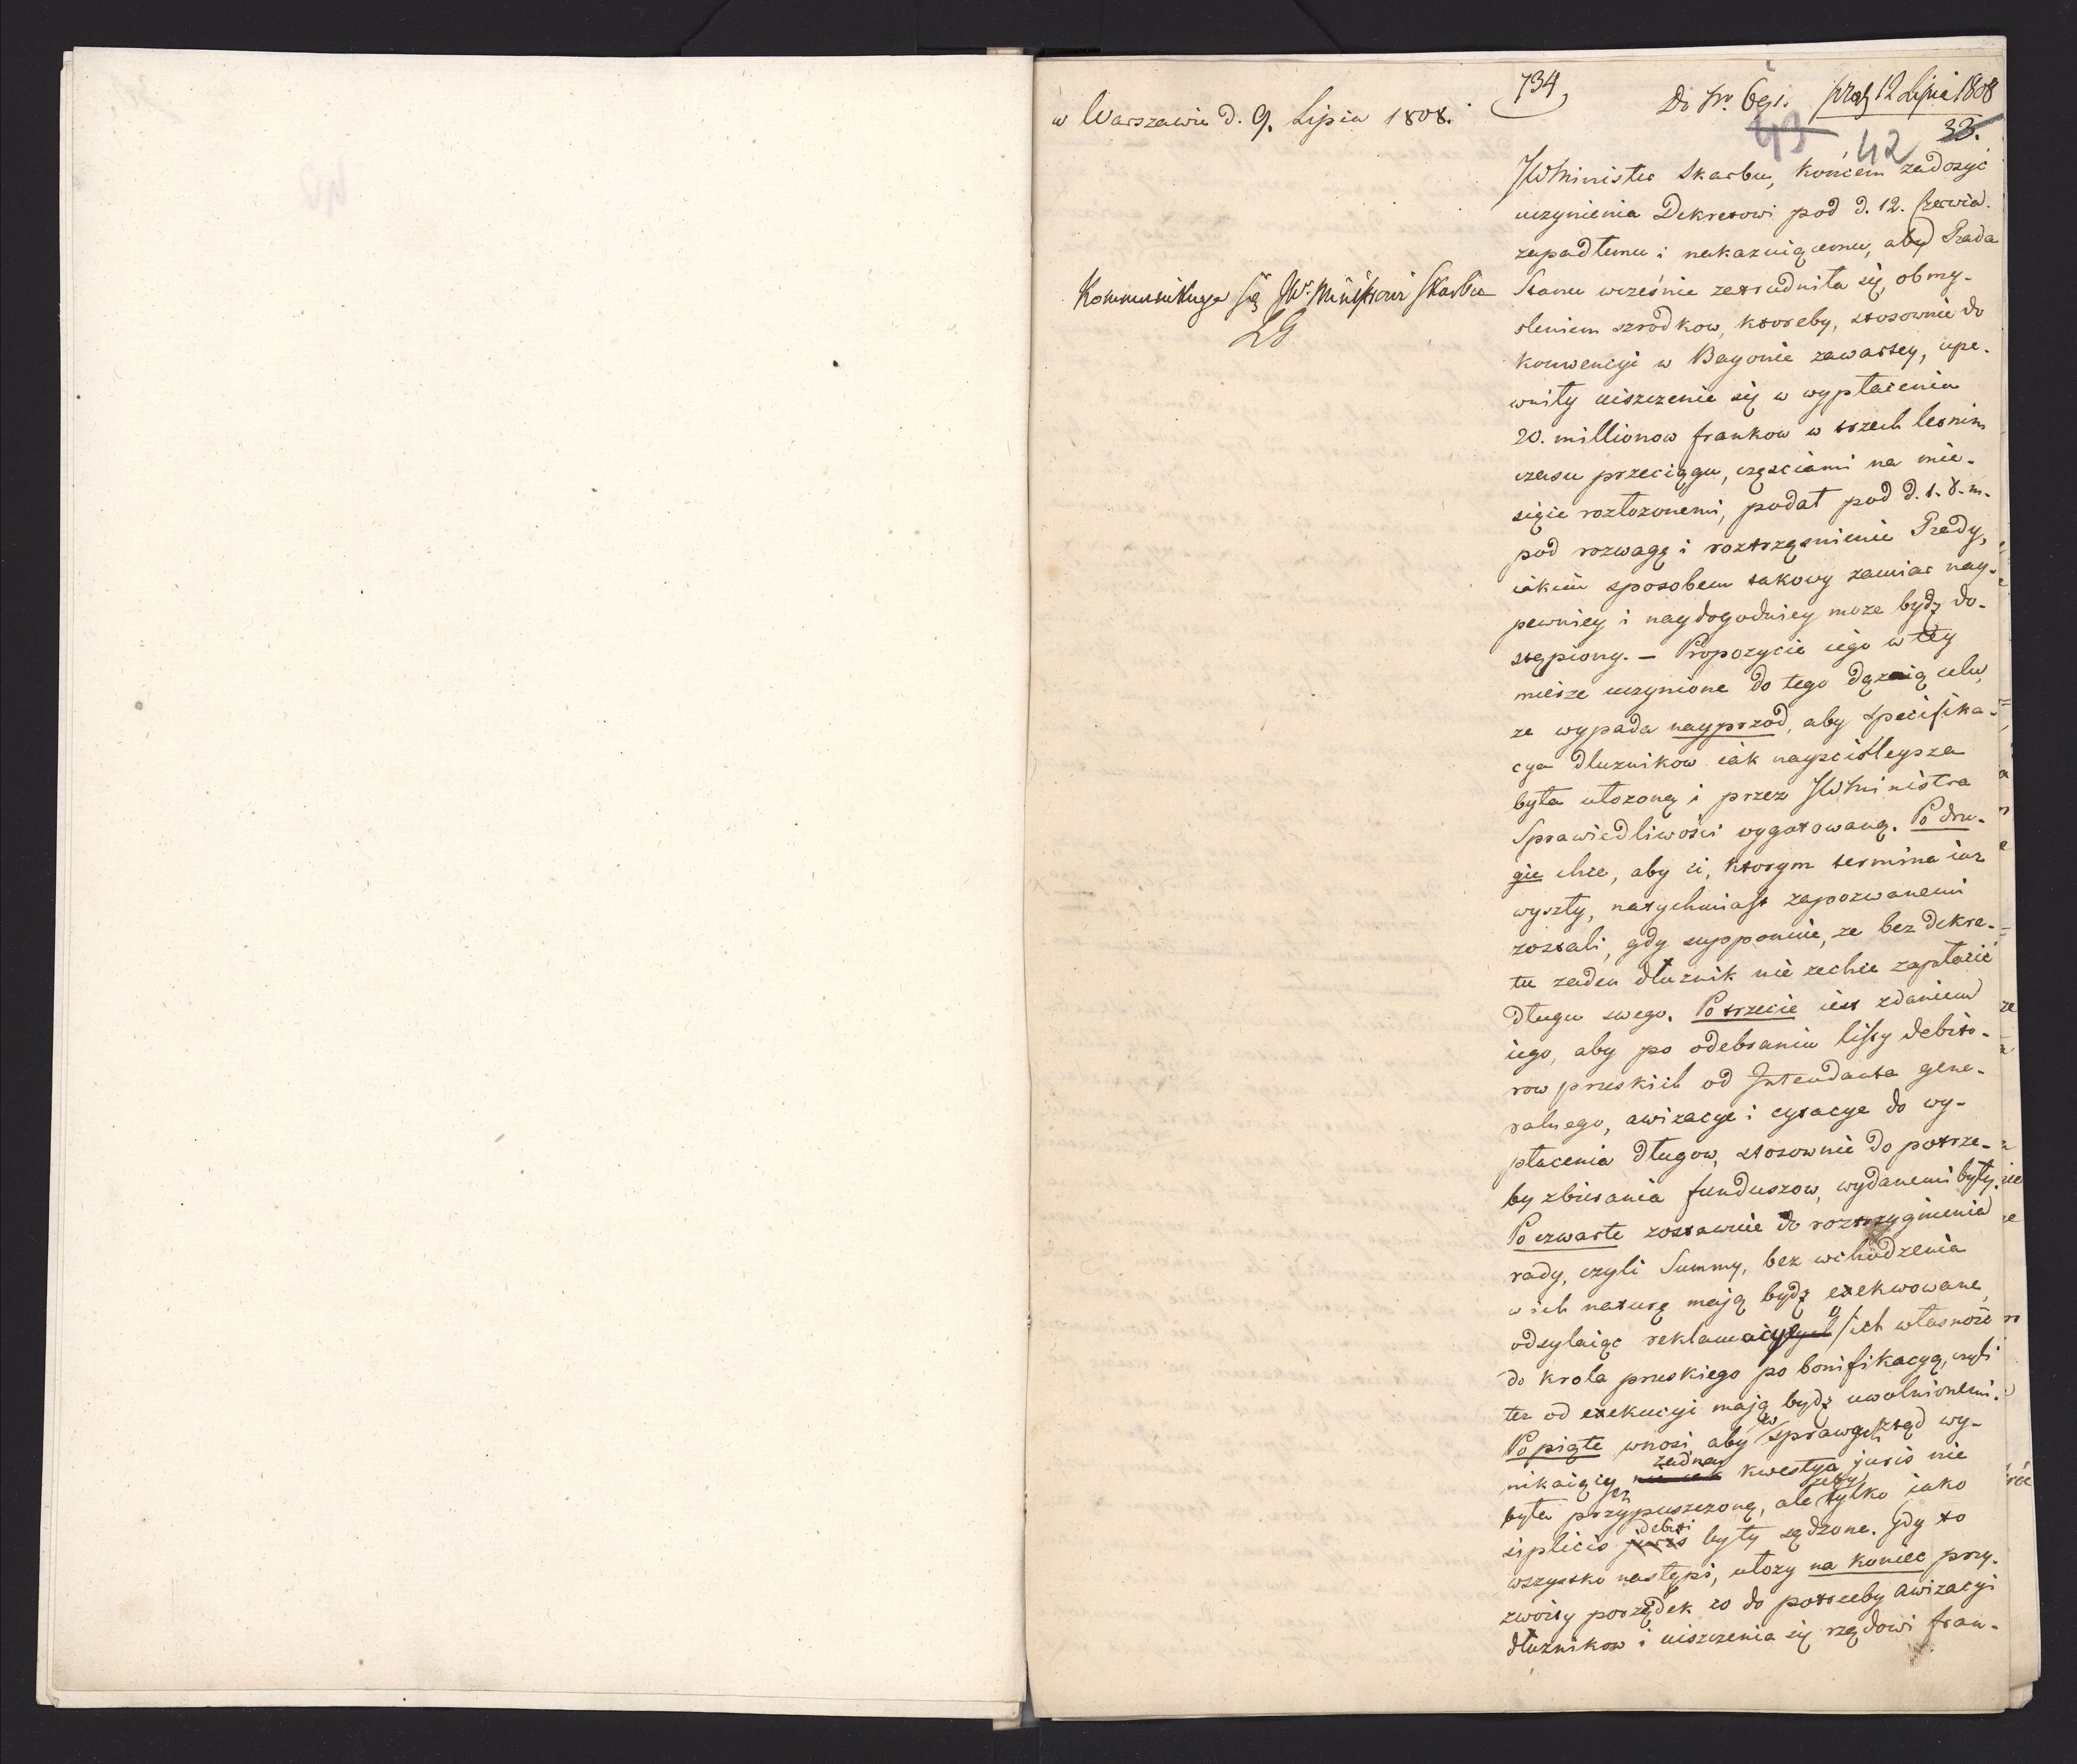 734,
Do Nr. 691. prod 12 Lipca 1808
w Warszawie d. 9. Lipca 1808.
43 42 33.
Kommunikuje się JW. Ministrowi Skarbu
LG
JW Minister Skarbu, końcem zadosyć
uczynienia Dekretowi pod d. 12. Czerwca.
zapadłemu i nakazuiącemu, aby Rada
Stanu wcześnie zatrudniła się, obmy-
sleniem szrodkow, ktoreby, stosownie do
konwencyi w Bayonie zawartey, upe-
wniły uiszczenie się w wypłaceniu
20. millionow frankow w trzech letnim
czasu przeciągu, częściami na mie-
siące rozłozonemi, podał pod d. 1. b. m.
pod rozwagę i roztrząsnienie Rady,
iakim sposobem takowy zamiar nay-
pewniey i naydogodniey moze bydź do-
stąpiony. – Propozycie iego w tey
mierze uczynione do tego dążą celu,
ze wypada nayprzod, aby specifika-
cya dłuznikow iak nayscisleysza
była ułozoną i przez JW Ministra
Sprawiedliwości wygotowaną. Po dru-
gie chce, aby ci, ktorym termina iuz
wyszły, natychmiast zapozwanemi
zostali, gdy supponuie, ze bez dekre-
tu zaden dłuznik nie zechce zapłacić
długu swego. Po trzecie iest zdaniem
iego, aby po odebraniu listy debito-
row pruskich od Intendanta gene-
ralnego, awizacye i cytacye do wy-
płacenia długow, stosownie do potrze-
by zbierania funduszow, wydanemi były.
Po czwarte zostawuie do roztrzygnienia
rady, czyli Summy, bez wchodzenia
w ich naturę mają bydź exekwowane,
odsyłaiąc reklamuiących o ich własność
do krola pruskiego po bonifikacyą, czyli
tez od exekucyi mają bydź uwolnionemi.
Po piąte wnosi, aby w sprawach ztąd wy-
nikaiących zadna kwestya juris nie
była przypuszczoną, ale zeby tylko iako
siplicis debiti były sądzone. Gdy to
wszystko nastąpi, ułozy na koniec przy-
zwoity porządek co do potrzeby awizacyi
dłuznikow i uiszczenia się rządowi fran-